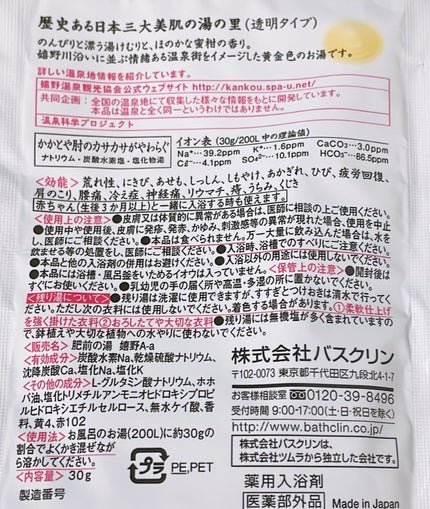 歴史ある日本三大美肌の湯の里(透明タイプ)
のんびりと漂う湯けむりと、ほのかな蜜柑の香り。
嬉野川沿いに並ぶ情緒ある温泉街をイメージした黄金色のお湯です。
詳しい温泉地情報を紹介しています。
嬉野温泉観光協会公式ウェブサイト http://kankou.spa-u.net/
共同企画:全国の温泉地にて収集した様々な情報をもとに開発しています。
本品は温泉と全く同一というわけではありません。
温泉科学プロジェクト
かかとや肘のカサカサがやわらぐ
ナトリウム・炭酸水素塩・塩化物湯
イオン表(30g/200L中の理論値)
Na⁺…39.2ppm K⁺…1.6ppm CaCO₃…3.0ppm
Cℓ⁻…4.1ppm SO₄²⁻…10.1ppm HCO₃⁻…86.5ppm
<効能>荒れ性、にきび、あせも、しっしん、しもやけ、あかぎれ、ひび、疲労回復、
肩のこり、腰痛、冷え症、神経痛、リウマチ、痔、うちみ、くじき
赤ちゃん(生後3か月以上)と一緒に入浴する時も使えます。
<使用上の注意>●皮膚又は体質的に異常がある場合は、医師に相談の上ご使用ください。
●使用中や使用後、皮膚に発疹、発赤、かゆみ、刺激感等の異常が現れた場合、使用を中止
し、医師にご相談ください。●本品は食べられません。万一大量に飲み込んだ場合は、水を
飲ませる等の処置をし、医師にご相談ください。●入浴時、浴槽でのすべりにご注意ください。
●本品と他の入浴剤の併用はお避けください。●入浴以外の用途には使用しないでください。
●本品には浴槽・風呂釜をいためるイオウは入っていません。<保管上の注意>●開封後は
すぐにお使いください。●乳幼児の手の届く所や高温・多湿の所に置かないでください。
<残り湯について>●残り湯は洗濯に使用できますが、すすぎとつけおきは清水で行ってく
ださい。ただし次の衣料には使用しないでください。着色する場合があります。①柔軟仕上げ
を強く掛けた衣料②おろしたてや大切な衣料●残り湯には無機塩が多く含まれていますの
で、鉢植えや大切な植物への水やりに使わないでください。
<販売名>肥前の湯 嬉野A-a
<有効成分>炭酸水素Na、乾燥硫酸ナトリウム、
沈降炭酸Ca、塩化Na、塩化K
<その他の成分>L-グルタミン酸ナトリウム、ホホ
バ油、塩化トリメチルアンモニオヒドロキシプロピ
ルヒドロキシエチルセルロース、無水ケイ酸、香
料、黄4、赤102
<使用法>お風呂のお湯(200L)に約30gの
割合でよくかき混ぜなが
ら溶かしてください。
<内容量>30g
製造番号
プラ
PE,PET
株式会社バスクリン
〒102-0073 東京都千代田区九段北4-1-7
お客様相談室 0120-39-8496
受付時間 9:00-17:00(土・日・祝日を除く)
http://www.bathclin.co.jp/
株式会社バスクリンは、
株式会社ツムラから独立した会社です。
薬用入浴剤
医薬部外品
Made in Japan